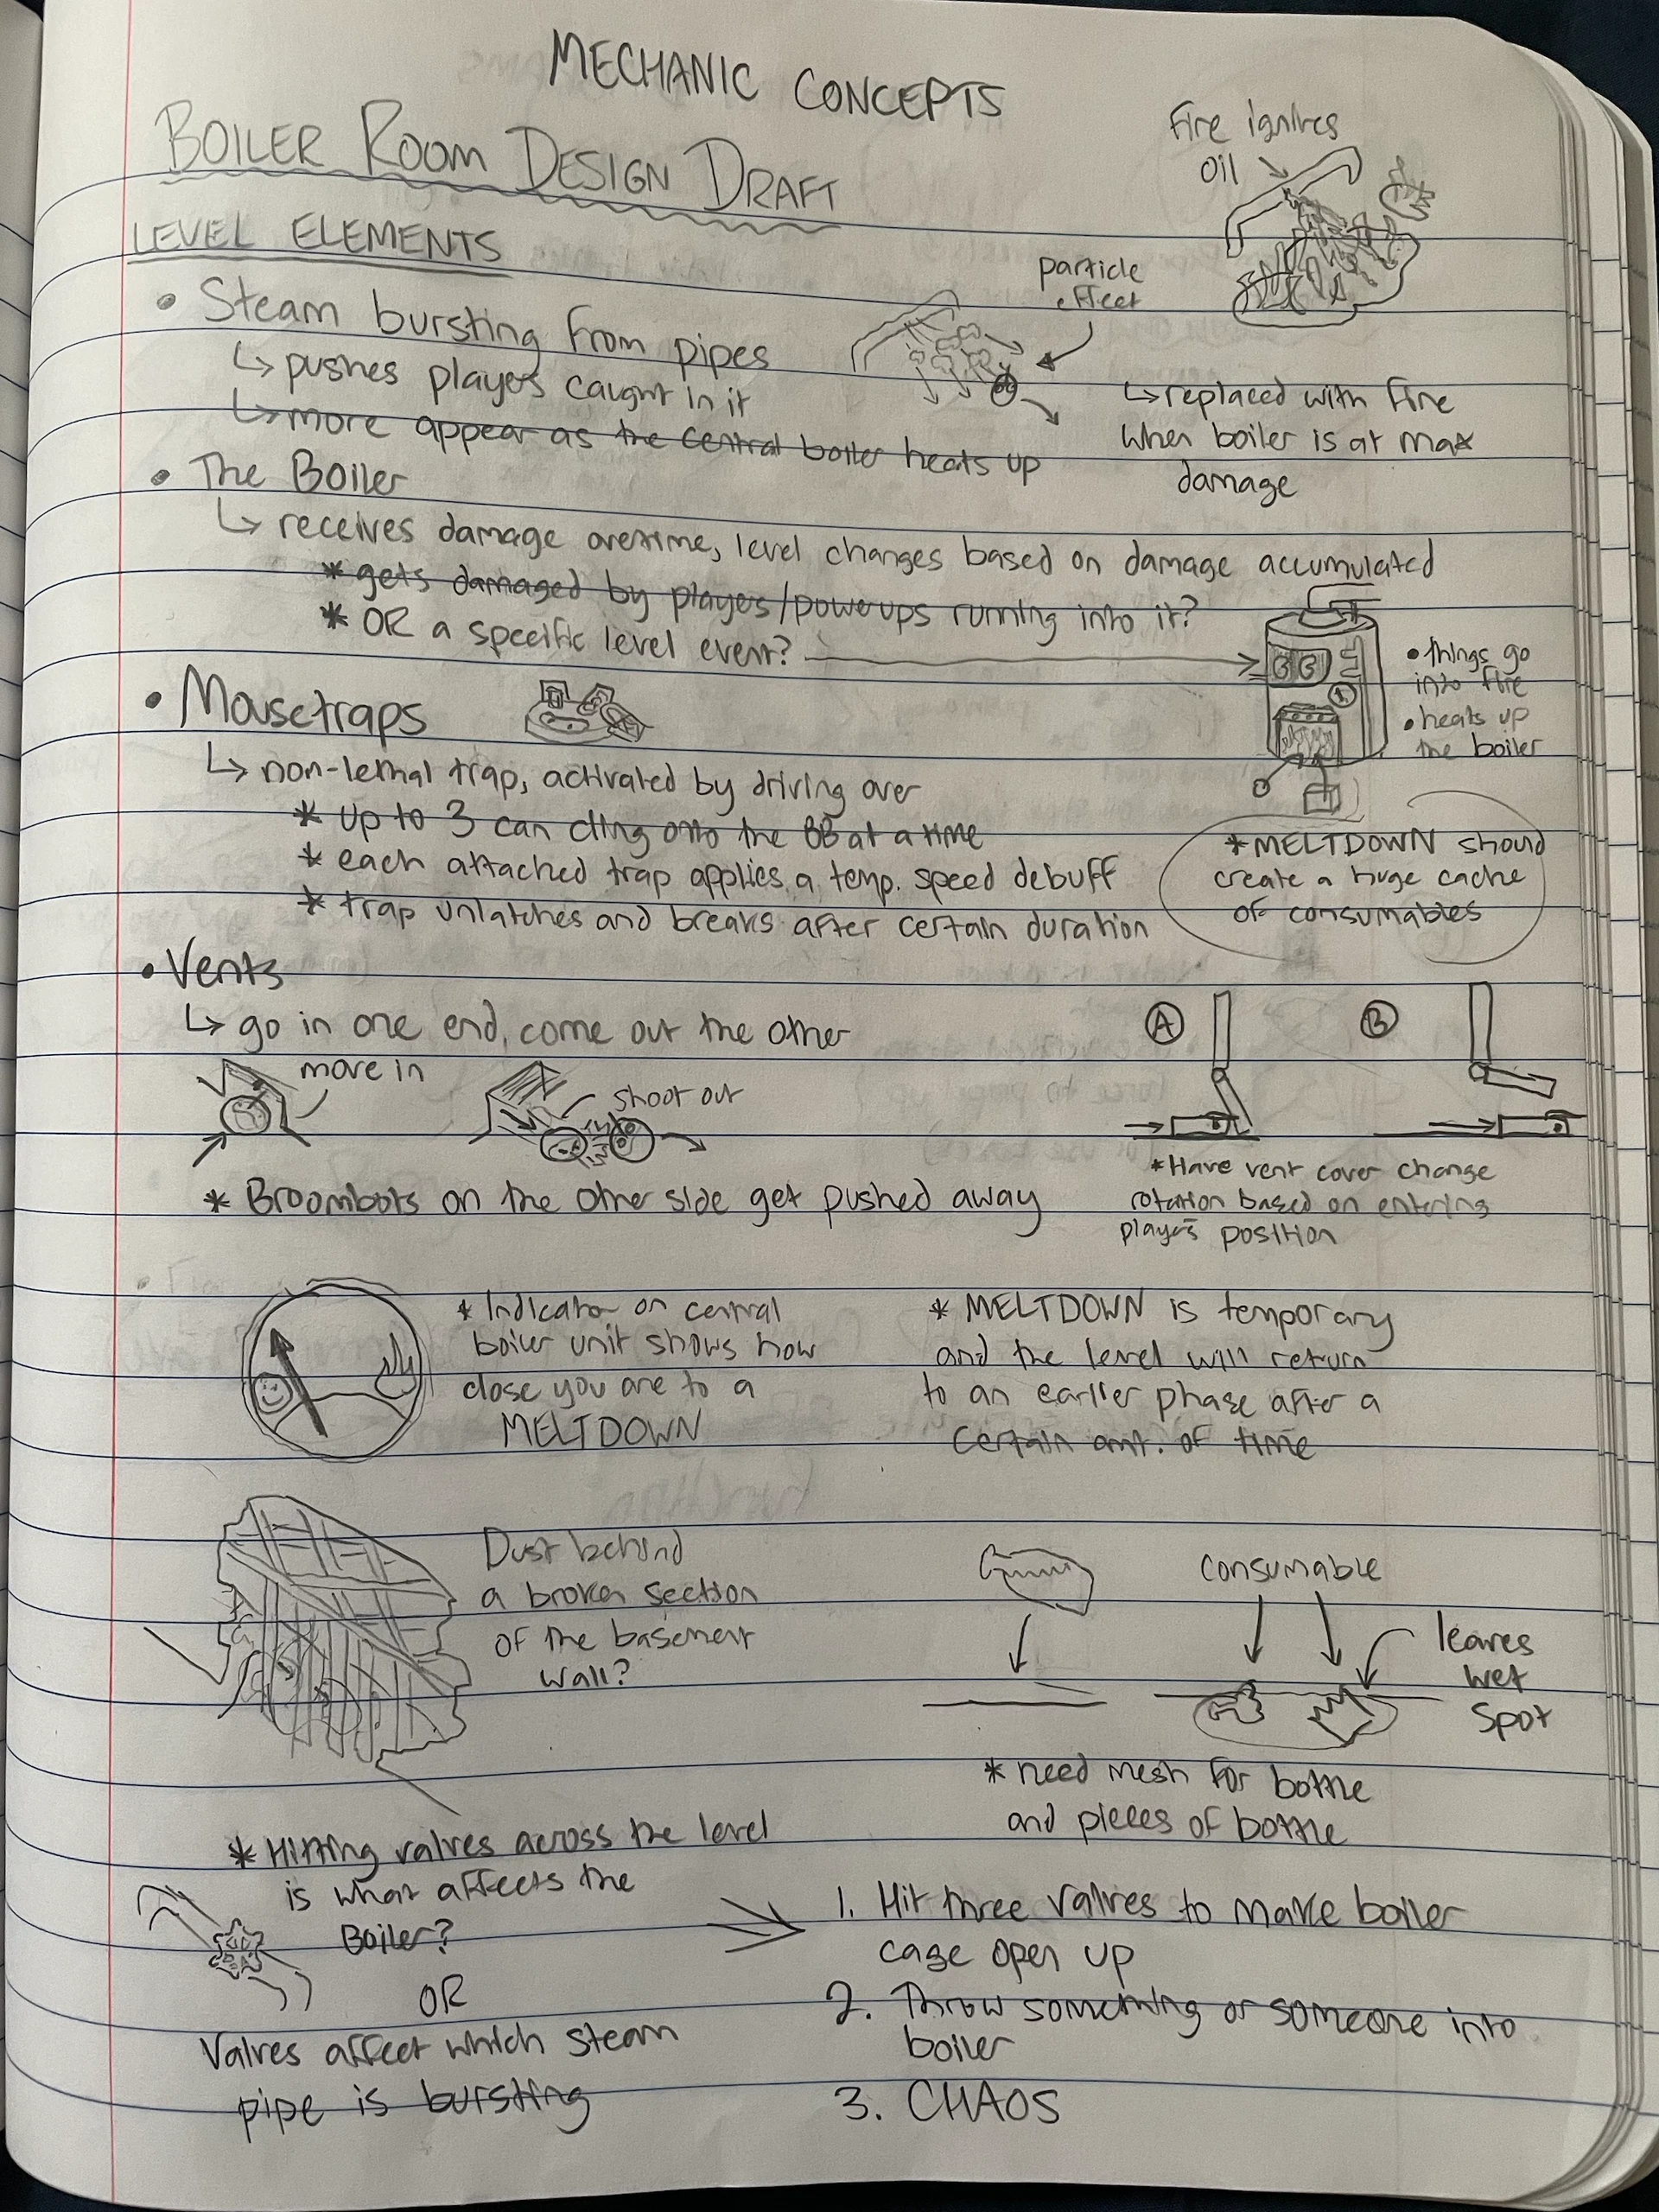 MECHANIC CONCEPTS
BOILER ROOM DESIGN DRAFT
Fire ignites
oil
LEVEL ELEMENTS
particle
effect
• Steam bursting from pipes
↳ pushes players caught in it
↳ more appear as the central boiler heats up
↳ replaced with fire
when boiler is at max
damage
• The Boiler
↳ receives damage overtime, level changes based on damage accumulated
* gets damaged by players/powerups running into it?
* OR a specific level event?
• things go
into fire
• heats up
the boiler
• Mousetraps
↳ non-lethal trap, activated by driving over
* up to 3 can cling onto the BB at a time
* each attached trap applies a temp. speed debuff
* trap unlatches and breaks after certain duration
* MELTDOWN should
create a huge cache
of consumables
• Vents
↳ go in one end, come out the other
move in
shoot out
* Broombots on the other side get pushed away
A
B
* Have vent cover change
rotation based on entering
players position
* Indicator on central
boiler unit shows how
close you are to a
MELTDOWN
* MELTDOWN is temporary
and the level will return
to an earlier phase after a
certain amt. of time
Dust behind
a broken section
of the basement
wall?
consumable
leaves
wet
spot
* need mesh for bottle
and pieces of bottle
* Hitting valves across the level
is what affects the
Boiler?
OR
Valves affect which steam
pipe is bursting
1. Hit three valves to make boiler
cage open up
2. Throw something or someone into
boiler
3. CHAOS